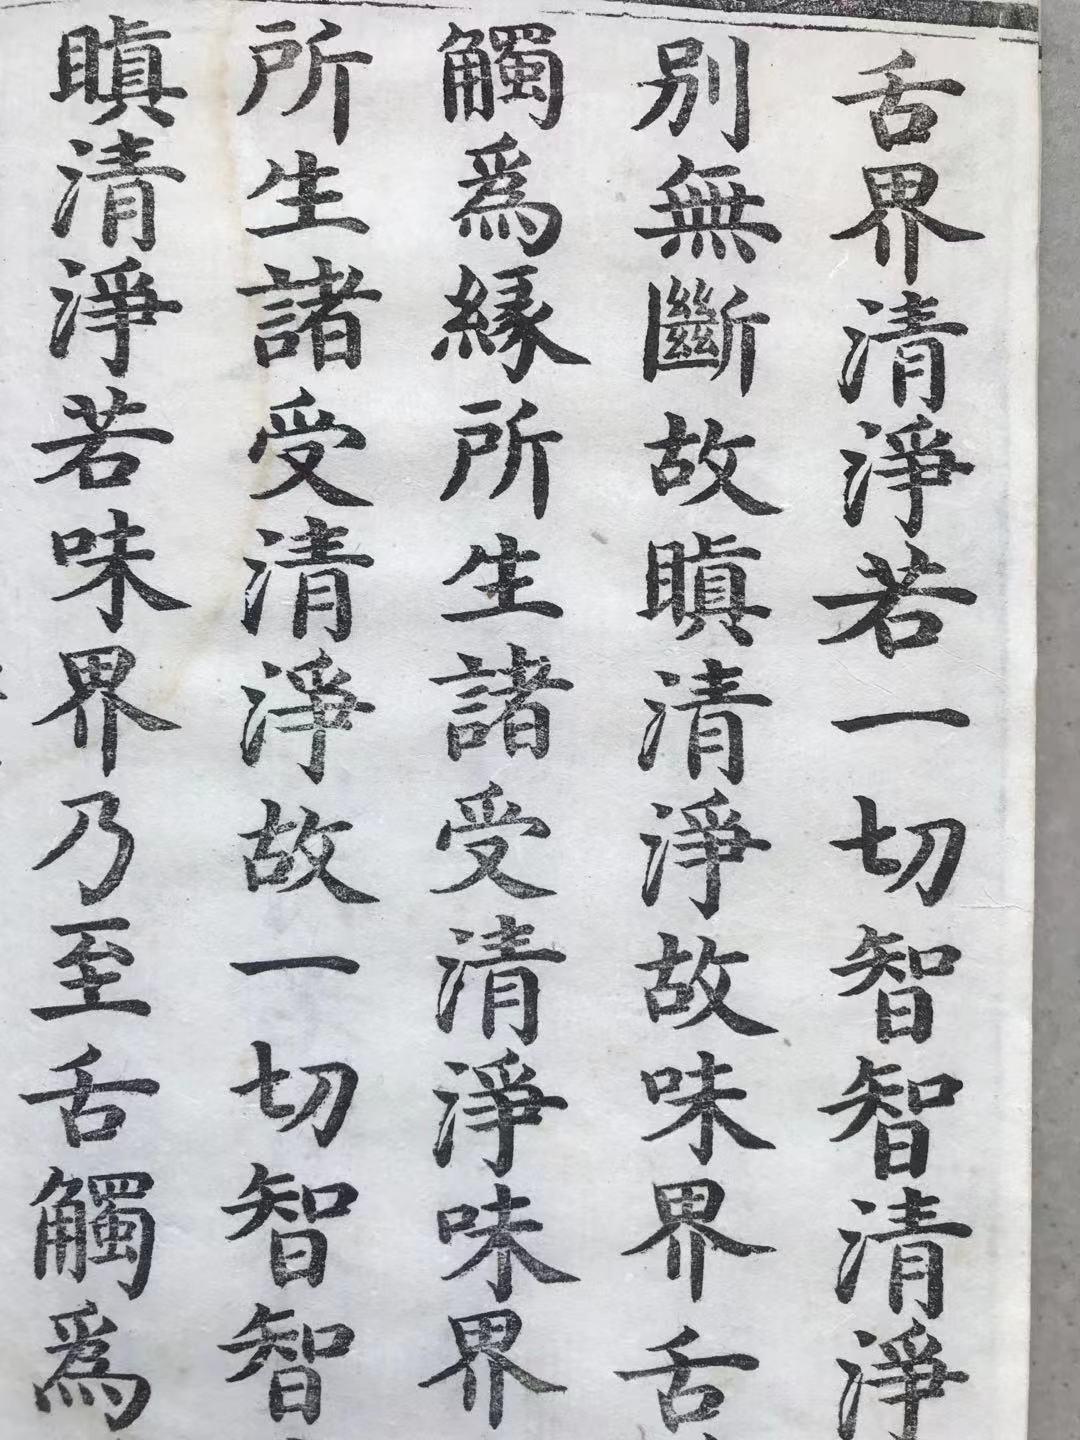 舌界清淨若一切智智清淨
別無斷故瞋清淨故味界舌
觸爲緣所生諸受清淨味界
所生諸受清淨故一切智智
瞋清淨若味界乃至舌觸爲